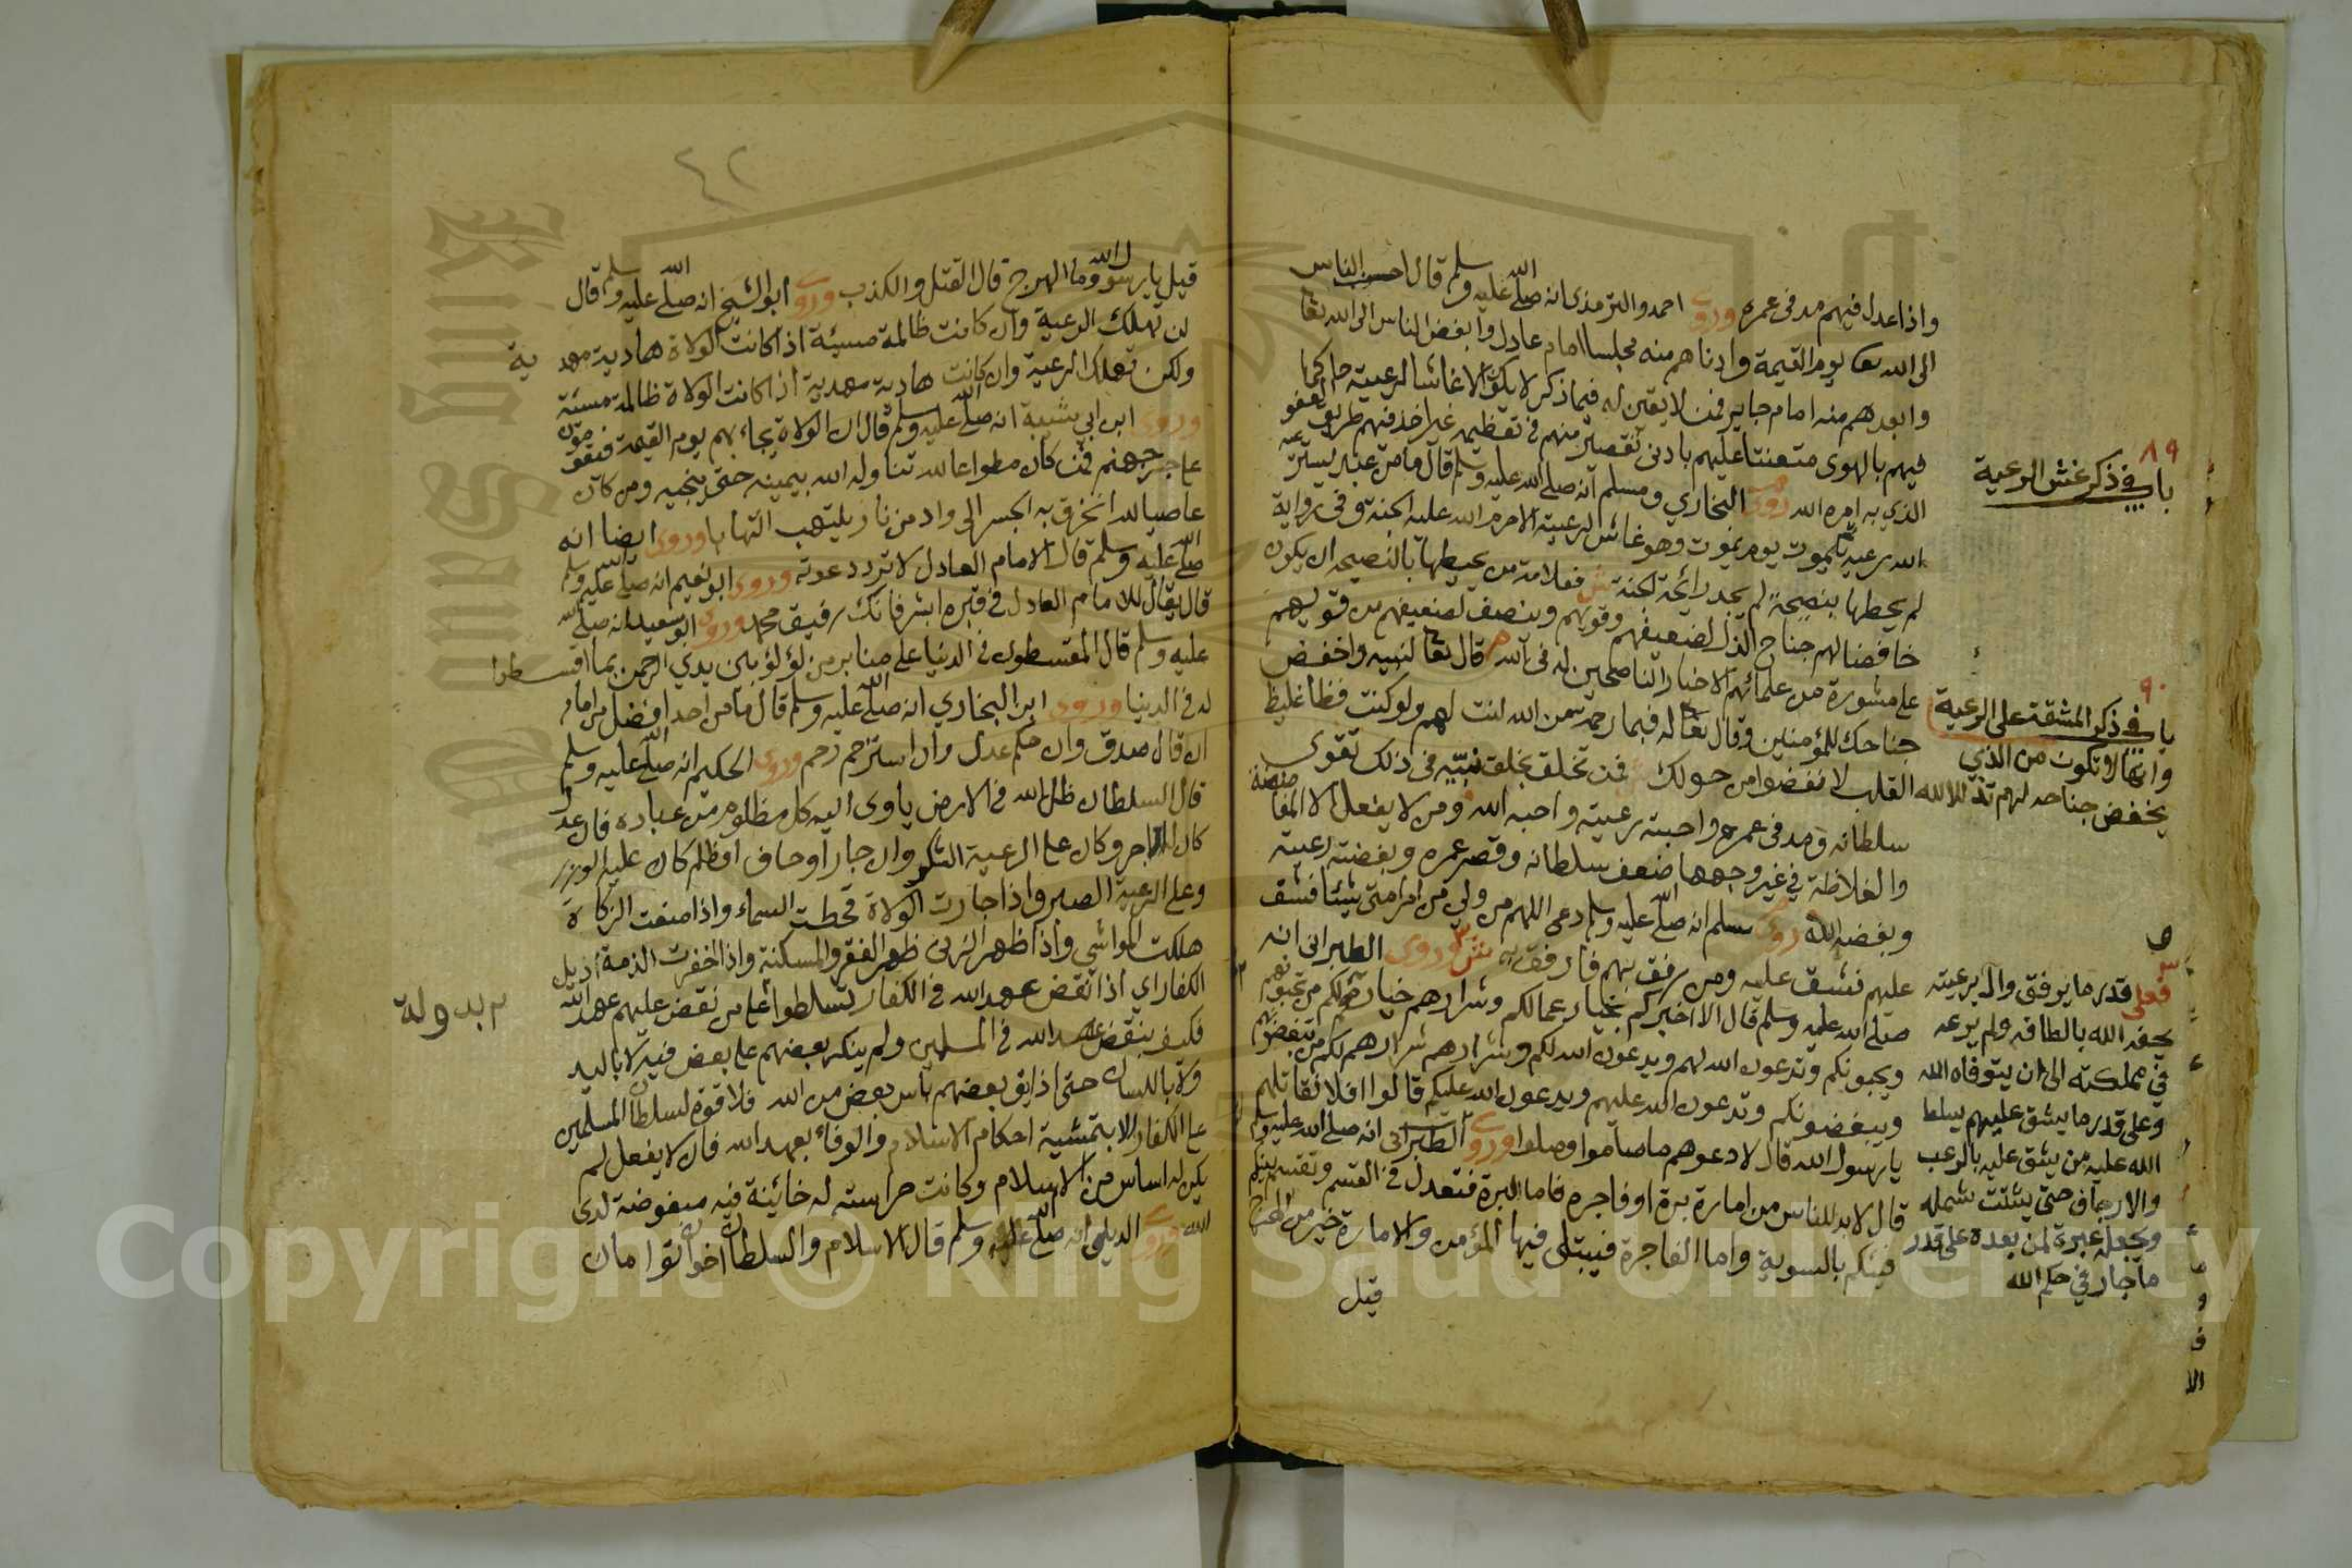 واذا عدل فيهم مد فى عمره وروى احمد والترمذى انه صلى الله عليه وسلم قال احب الناس
الى الله تعا يوم القيمة وادناهم منه مجلسا امام عادل وابغض الناس الى الله تعا
وابعدهم منه امام جاير فمن لا يقين له فيما ذكر لا يكون الا غاشا لرعيته حاكما
فيهم بالهوى متعنتا عليهم بادنى تقصير منهم فى تعظيمه غير اخذ فيهم طريق العفو
الذي به امره الله روى البخاري ومسلم انه صلى الله عليه وسلم قال ما من عبد يسترعيه
الله رعية يموت يوم يموت وهو غاش لرعيته الا حرم الله عليه الجنة وفى رواية
لم يحطها بنصيحة لم يجد رائحة الجنة فعلامة من يحيطها بالنصيحة ان يكون
خافضا لهم جناح الذل لضعيفهم وقويهم وينصف لضعيفهم من قويهم
على مشورة من علمائهم الاخيار الناصحين له فى الله قال تعا لنبيه واخفض
جناحك للمؤمنين وقال تعا له فبما رحمة من الله لنت لهم ولو كنت فظا غليظ
القلب لا نفضوا من حولك فمن تخلق بخلق نبيه فى ذلك تقوى
سلطانه ومد فى عمره واحبته رعيته واحبه الله ومن لا يفعل الا
والغلاظة في غير وجهها ضعف سلطانه وقصر عمره وبغضته رعيته
وبغضه الله روى مسلم انه صلى الله عليه وسلم دعى اللهم من ولي من امر امتى شيئا فشق
عليهم فشق عليه ومن رفق بهم فارفق به وروى الطبرانى انه
صلى الله عليه وسلم قال الا اخبركم بخيار عمالكم وشرارهم خيارهم لكم من تحبونهم
ويحبونكم وتدعون الله لهم ويدعون الله لكم وشرارهم شرارهم لكم من تبغضونهم
ويبغضونكم وتدعون الله عليهم ويدعون الله عليكم قالوا افلا نقاتلهم
يا رسول الله قال لا دعوهم ما صاموا وصلوا وروى الطبرانى انه صلى الله عليه وسلم
قال لا بد للناس من امارة برة او فاجرة فاما البرة فتعدل فى القسم وتقسم بينكم
فيئكم بالسوية واما الفاجرة فيبتلى فيها المؤمن والامارة خير من الهرج
قيل
٨٩
باب في ذكر غش الرعية
٩٠
باب في ذكر المشقة على الرعية
وانها لا تكون من الذي
يخفض جناحه لهم تذللا لله
فعلى قدر ما يوفق والله برعيته
يحفه الله بالطافه ولم يرعه
في مملكته الى ان يتوفاه الله
وعلى قدر ما يشق عليهم يسلط
الله عليه من يشق عليه بالرعب
والارجاف حتى يتشتت شمله
ويجعله عبرة لمن بعده على قدر
ما جار في حكم الله
٤٢
قيل يا رسول الله وما الهرج قال القتل والكذب وروى ابو الشيخ انه صلى الله عليه وسلم قال
لن تهلك الرعية وان كانت ظالمة مسيئة اذا كانت الولاة هادية مهدية
ولكن تهلك الرعية وان كانت هادية مهدية اذا كانت الولاة ظالمة مسيئة
وروى ابن ابي شيبة انه صلى الله عليه وسلم قال ان الولاة يجاء بهم يوم القيمة فيقفون
على جسر جهنم فمن كان مطواعا لله تناوله الله بيمينه حتى ينجيه ومن كان
عاصيا لله انخرق به الجسر الى واد من نار يلتهب التهابا وروى ايضا انه
صلى الله عليه وسلم قال الامام العادل لا ترد دعوته وروى ابو نعيم انه صلى الله عليه وسلم
قال يقال للامام العادل فى قبره ابشر فانك رفيق محمد وروى ابو سعيد انه صلى الله
عليه وسلم قال المقسطون فى الدنيا على منابر من لؤلؤ بين يدي الرحمن بما اقسطوا
له فى الدنيا وروى ابن البخاري انه صلى الله عليه وسلم قال ما من احد افضل من امام
ان قال صدق وان حكم عدل وان استرحم رحم وروى الحكيم انه صلى الله عليه وسلم
قال السلطان ظل الله فى الارض ياوى اليه كل مظلوم من عباده فان عدل
كان له الاجر وكان على الرعية الشكر وان جار او حاف او ظلم كان عليه الوزر
وعلى الرعية الصبر واذا جارت الولاة قحطت السماء واذا منعت الزكاة
هلكت المواشي واذا ظهر الزنى ظهر الفقر والمسكنة واذا اخفرت الذمة اذيل
الكفار اي اذا نقض عهد الله فى الكفار تسلطوا على من نقض عليهم عهد الله
فكيف بنقض عهد الله فى المسلمين ولم ينكر بعضهم على بعض فيه لا باليد
ولا باللسان حتى اذا يق بعضهم باس بعض من الله فلا قوة لسلطان المسلمين
على الكفار الا بتمشية احكام الاسلام والوفاء بعهد الله فان لا يفعل لم
يكن له اساس من الاسلام وكانت حراسته له خائنة فيه مبغوضة لدى
الله وروى الديلمي انه صلى الله عليه وسلم قال الاسلام والسلطان اخوان توامان
بدولة
Copyright © King Saud University